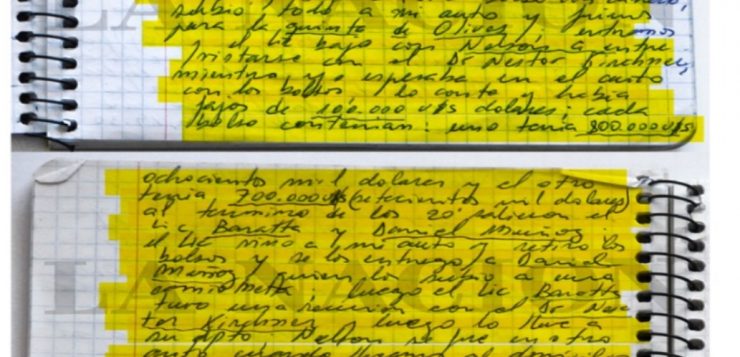 subio todo a mi auto y fuimos
para la quinta de Olivos, entramos
el Lic bajo con Nelson a entre
/vistarse con el Dr Nestor Kirchner,
mientras yo esperaba en el auto
con los bolsos, lo conte y habia
fajos de 100.000 u$s dolares; cada
bolso contenian: uno tenia 800.000 u$s
ochociento mil dolares y el otro
tenia 700.000 u$s (setecientos mil dolares)
al termino de los 20' salieron el
Lic Baratta y Daniel Muñoz;
el Lic vino a mi auto y retiro los
bolsos y se los entrego a Daniel
Muñoz, quien los subio a una
camioneta; luego el Lic Baratta
tuvo una reunion con el Dr Nes
tor Kirchner y luego lo lleve a
su dpto Nelson se fue en otro
LA NACION